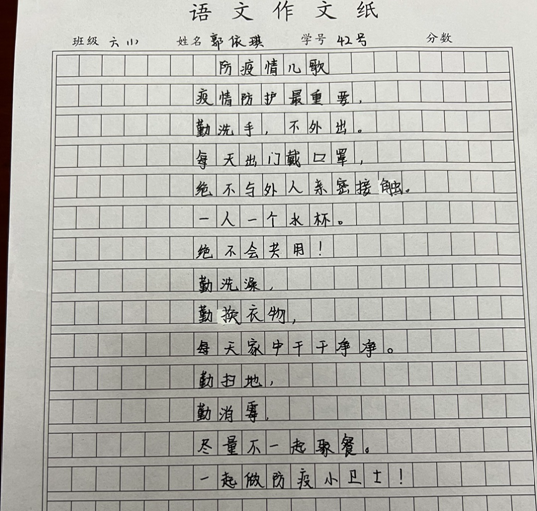 语文作文纸
班级 六小 姓名 郭依琪 学号 42号 分数
防疫情儿歌
疫情防护最重要,
勤洗手,不外出。
每天出门戴口罩,
绝不与外人亲密接触。
一人一个水杯。
绝不会共用!
勤洗澡,
勤换衣物,
每天家中干干净净。
勤扫地,
勤消毒,
尽量不一起聚餐。
一起做防疫小卫士!